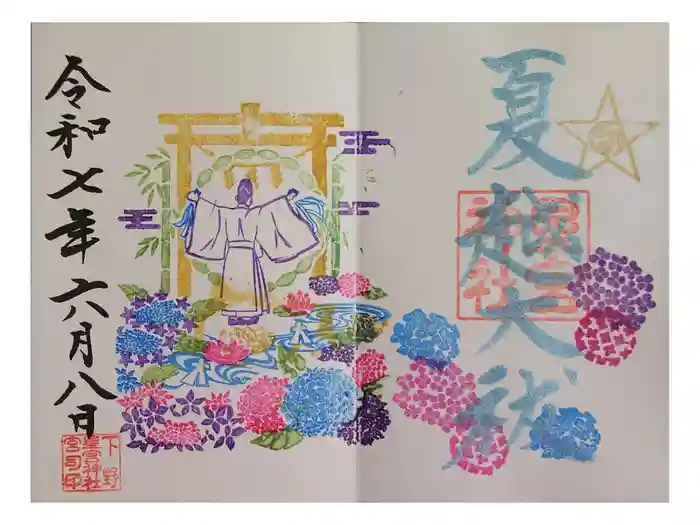 夏越大祓
令和七年六月八日
下野
星宮神社
宮司印